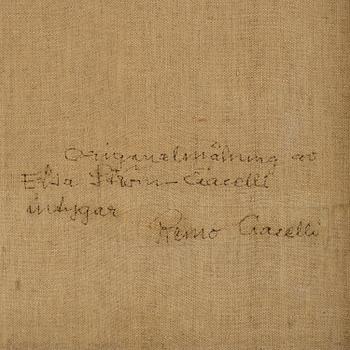 Originalmålning av
Elsa Ström-Ciacelli
intygar
Remo Ciacelli